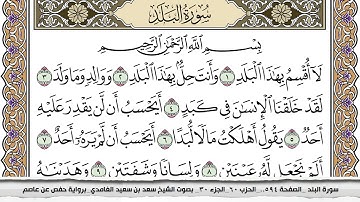 سُورَةُ البَلَدِ
بِسْمِ ٱللَّهِ ٱلرَّحْمَٰنِ ٱلرَّحِيمِ
لَآ أُقْسِمُ بِهَٰذَا ٱلْبَلَدِ ١ وَأَنتَ حِلٌّۢ بِهَٰذَا ٱلْبَلَدِ ٢ وَوَالِدٍ وَمَا وَلَدَ ٣
لَقَدْ خَلَقْنَا ٱلْإِنسَٰنَ فِى كَبَدٍ ٤ أَيَحْسَبُ أَن لَّن يَقْدِرَ عَلَيْهِ
أَحَدٌ ٥ يَقُولُ أَهْلَكْتُ مَالًا لُّبَدًا ٦ أَيَحْسَبُ أَن لَّمْ يَرَهُۥٓ أَحَدٌ ٧
أَلَمْ نَجْعَل لَّهُۥ عَيْنَيْنِ ٨ وَلِسَانًا وَشَفَتَيْنِ ٩ وَهَدَيْنَٰهُ
سورة البلد .. الصفحة ٥٩٤.. الحزب ٦٠ الجزء ٣٠.. بصوت الشيخ سعد بن سعيد الغامدي. برواية حفص عن عاصم